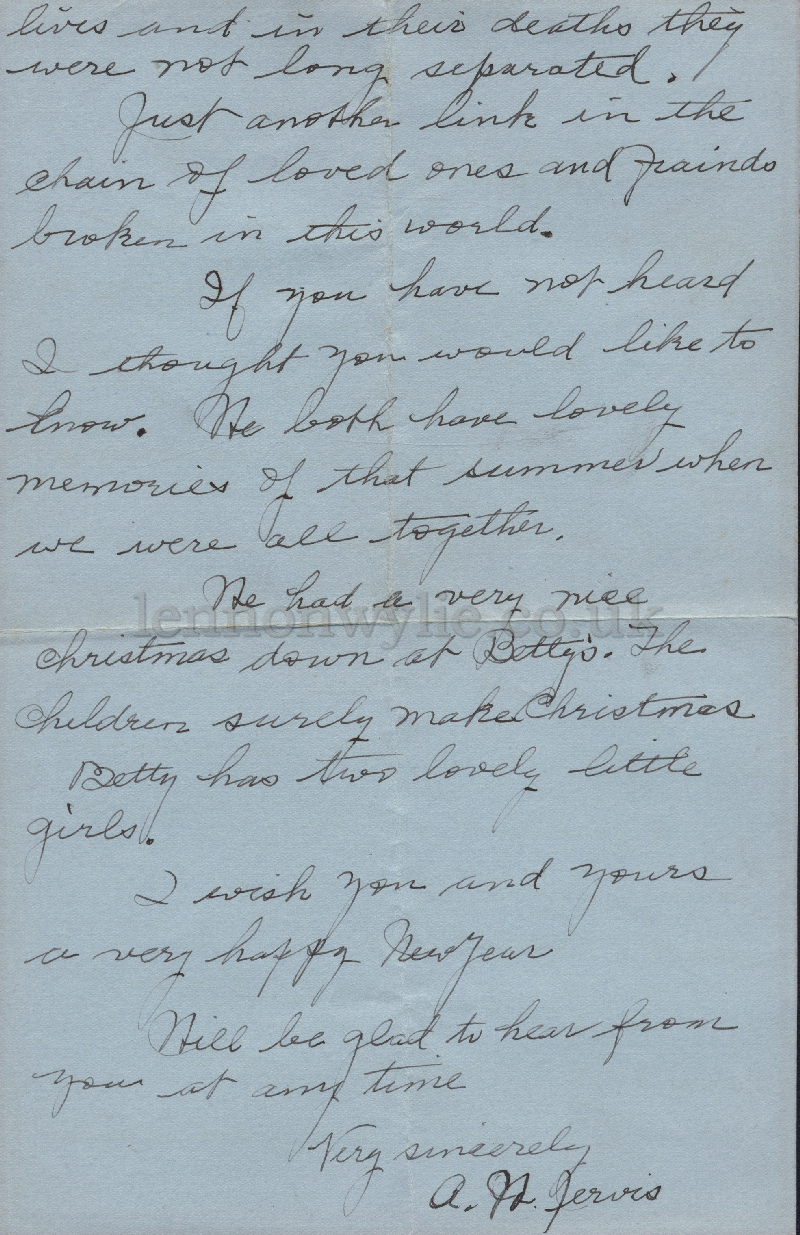 lives and in their deaths they
were not long separated.
Just another link in the
chain of loved ones and frainds
broken in this world.
If you have not heard
I thought you would like to
know. We both have lovely
memories of that summer when
we were all together.
We had a very nice
lennonwylie.co.uk
Christmas down at Betty's. The
Children surely make Christmas
Betty has two lovely little
girls.
I wish you and yours
a very happy New Year
Will be glad to hear from
you at any time
Very sincerely
A. W. Jervis